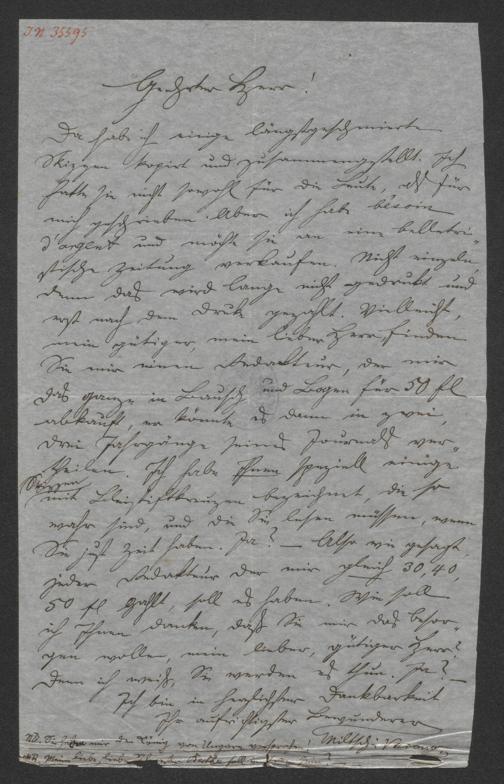 I.N. 35595
Geehrter Herr!
Da hab ich einige längstgeschmierte
Skizzen kopirt und zusammengestellt. Ich
hatte sie nicht sowohl für die Leute, als für
mich geschrieben. Aber ich habe besoin
d'argent und möchte sie an eine belletri-
stische Zeitung verkaufen. Nicht einzeln,
denn das wird lange nicht gedrukt und
erst nach dem Druk gezahlt. Vielleicht,
mein gütiger, mein lieber Herr finden
Sie mir einen Redakteur, der mir
das ganze in Bausch und Bogen für 50 fl
abkauft, er könnte es dann in zwei,
drei Jahrgänge seines Journals ver-
theilen. Ich habe Ihnen speziell einige
Skizzen
mit Bleistiftkreuzen bezeichnet, die so
wahr sind, und die Sie lesen müssen, wenn
Sie just Zeit haben. Ja? – Also wie gesagt,
jeder Redakteur der mir gleich 30, 40,
50 fl zahlt, soll es haben. Wie soll
ich Ihnen danken, daß Sie mir das besor-
gen wollen, mein lieber, gütiger Herr?
Denn ich weiß, Sie werden es thun. Ja? –
Ich bin in herzlichster Dankbarkeit
Ihr aufrichtigster Bewunderer
NB. Sie haben mir den König von Ungarn versprochen!
NB. Meine liebe